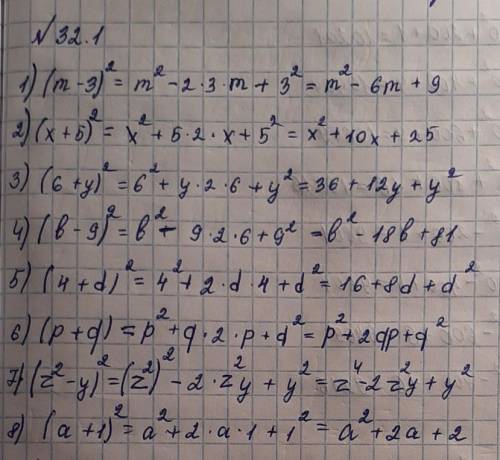 №32.1
1) (m-3)² = m² - 2·3·m + 3² = m² - 6m + 9
2) (x+5)² = x² + 5·2·x + 5² = x² + 10x + 25
3) (6+y)² = 6² + y·2·6 + y² = 36 + 12y + y²
4) (в-9)² = в² - 9·2·в + 9² = в² - 18в + 81
5) (4+d)² = 4² + 2·d·4 + d² = 16 + 8d + d²
6) (p+q) = p² + q·2·p + q² = p² + 2qp + q²
7) (z²-y)² = (z²)² - 2·z²y + y² = z⁴ - 2z²y + y²
8) (a+1)² = a² + 2·a·1 + 1² = a² + 2a + 2